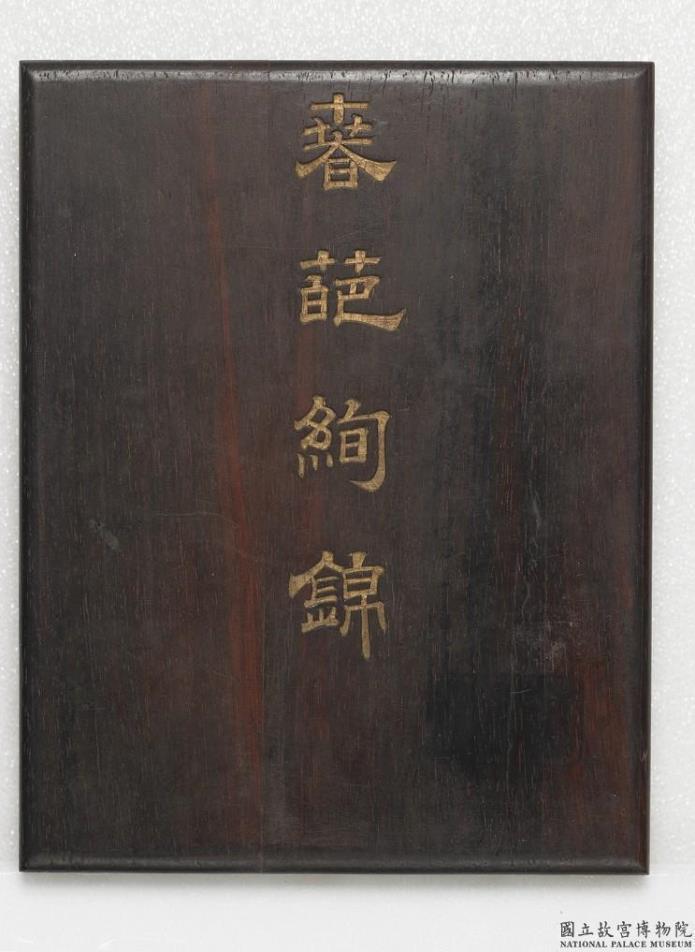 春葩絢錦
國立故宮博物院
NATIONAL PALACE MUSEUM